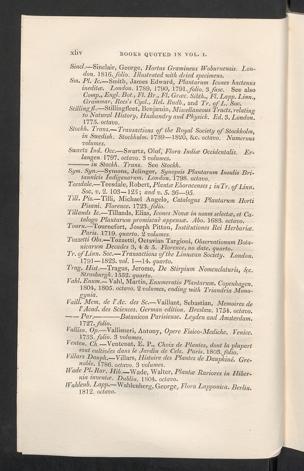 xliv BOOKS QUOTED IN VOL. I.
Sincl.—Sinclair, George, Hortus Gramineus Woburnensis. Lon-
don. 1816. folio. Illustrated with dried specimens.
Sm. Pl. Ic.—Smith, James Edward, Plantarum Icones hactenus
ineditæ. London. 1789, 1790, 1791. folio. 3 fasc. See also
Comp., Engl. Bot., Fl. Br., Fl. Græc. Sibth., Fl. Lapp. Linn.,
Grammar, Rees's Cycl., Rel. Rudb., and Tr. of L. Soc.
Stillingfl.—Stillingfleet, Benjamin, Miscellaneous Tracts, relating
to Natural History, Husbandry and Physick. Ed. 3. London.
1775. octavo.
Stockh. Trans.—Transactions of the Royal Society of Stockholm,
in Swedish. Stockholm. 1739—1820, &c. octavo. Numerous
volumes.
Swartz Ind. Occ.—Swartz, Olof, Flora Indiæ Occidentalis. Er-
langen. 1797. octavo. 3 volumes.
—— in Stockh. Trans. See Stockh.
Sym. Syn.—Symons, Jelinger, Synopsis Plantarum Insulis Bri-
tannicis Indigenarum. London. 1798. octavo.
Teesdale.—Teesdale, Robert, Plantæ Eboracenses; in Tr. of Linn.
Soc. v. 2. 103—125; and v. 5. 36—95.
Till. Pis.—Tilli, Michael Angelo, Catalogus Plantarum Horti
Pisani. Florence. 1723. folio.
Tillands Ic.—Tillands, Elias, Icones Novæ in usum selectæ, et Ca-
talogo Plantarum promiscuè appensæ. Abo. 1683. octavo.
Tourn.—Tournefort, Joseph Pitton, Institutiones Rei Herbariæ.
Paris. 1719. quarto. 3 volumes.
Tozzetti Obs.—Tozzetti, Octavian Targioni, Observationum Bota-
nicarum Decades 3, 4 & 5. Florence, no date. quarto.
Tr. of Linn. Soc.—Transactions of the Linnæan Society. London.
1791—1823. vol. 1—14. quarto.
Trag. Hist.—Tragus, Jerome, De Stirpium Nomenclaturis, &c.
Strasburgh. 1552. quarto.
Vahl. Enum.—Vahl, Martin, Enumeratio Plantarum. Copenhagen.
1804, 1805. octavo. 2 volumes, ending with Triandria Mono-
gynia.
Vaill. Mem. de l'Ac. des Sc.—Vaillant, Sebastian, Memoires de
l'Acad. des Sciences. German edition. Breslaw. 1754. octavo.
—— Par.——Botanicon Parisiense. Leyden and Amsterdam.
1727. folio.
Vallisn. Op.—Vallisneri, Antony, Opere Fisico-Mediche. Venice.
1733. folio. 3 volumes.
Venten. Ch.—Ventenat, E. P., Choix de Plantes, dont la plupart
sont cultivées dans le Jardin de Cels. Paris. 1803. folio.
Villars Dauph.—Villars, Histoire des Plantes de Dauphiné. Gre-
noble. 1786. octavo. 3 volumes.
Wade Pl. Rar. Hib.—Wade, Walter, Plantæ Rariores in Hiber-
nia inventæ. Dublin. 1804. octavo.
Wahlenb. Lapp.—Wahlenberg, George, Flora Lapponica. Berlin.
1812. octavo.